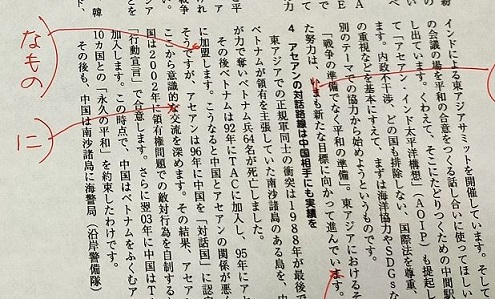 インドによる東アジアサミットを開催しています。そし
の会議の場を平和の合意をつくる話し合いに使ってほしい
し出ています。くわえて、そこにたどりつくための中間駅
て「アセアン・インド太平洋構想」(AOIP)も提起し
ます。内政不干渉、どの国も排除しない、国際法を尊重、
の重視などを基本にすえて、まずは海洋協力やSDGsな
別のテーマでの協力から始めようというものです。
「戦争の準備でなく平和の準備」。東アジアにおけるそ
た努力は、いまも新たな目標に向かって進んでいます。
4 アセアンの対話路線は中国相手にも実績を
東アジアでの正規軍同士の衝突は1988年が最後で
ベトナムが領有を主張していた南沙諸島のある島を、中
が力で奪いベトナム兵64名が死亡しました。
その後ベトナムは92年にTACに加入し、95年にアセ
に加盟します。こうなると中国とアセアンの関係が悪
そうですが、アセアンは96年に中国を「対話国」に認
ここから意識的な交流を深めます。その結果、アセア
国は2002年に 領有権 題での敵対行為を自制する
行動宣言」で合意します。さらに翌03年に中国はT
加入します。この時点で、中国はベトナムをふくむア
10カ国との「永久の平和」を約束したわけです。
その後も、中国は南沙諸島に海警局(沿岸警備隊)
なもの
に
韓